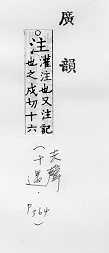 廣韻
○注
灌注也又注記
也之戍切十六
(去聲
十遇.
P364